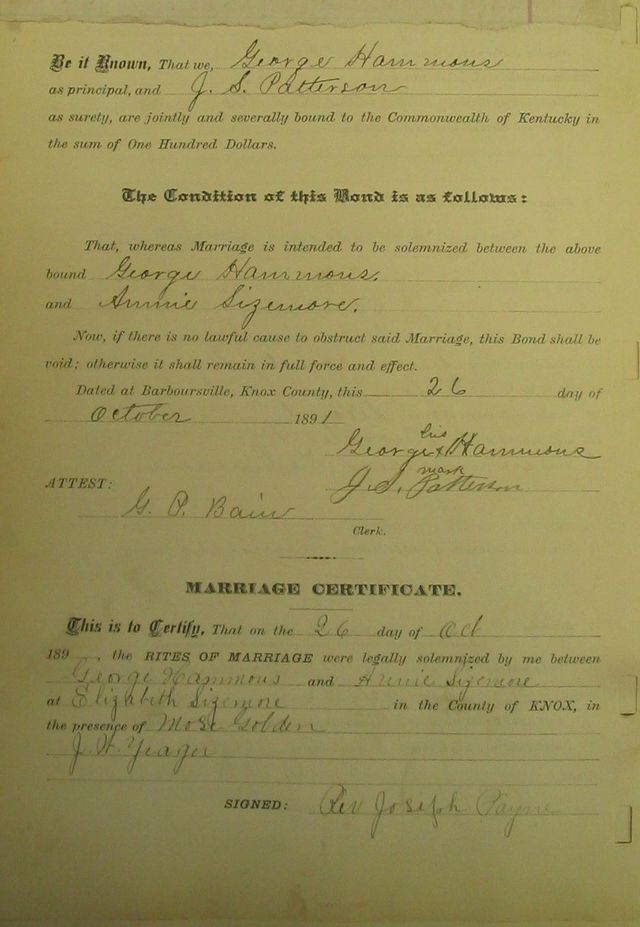 Be it Known, That we, George Hammons
as principal, and J. S. Patterson
as surety, are jointly and severally bound to the Commonwealth of Kentucky in
the sum of One Hundred Dollars.
The Condition of this Bond is as follows:
That, whereas Marriage is intended to be solemnized between the above
bound George Hammons.
and Annie Sizemore.
Now, if there is no lawful cause to obstruct said Marriage, this Bond shall be
void; otherwise it shall remain in full force and effect.
Dated at Barboursville, Knox County, this 26 day of
October 1891
his
George x Hammons
mark
ATTEST: J. S. Patterson
G. P. Bain
Clerk.
MARRIAGE CERTIFICATE.
This is to Certify, That on the 26 day of Oct
189 , the RITES OF MARRIAGE were legally solemnized by me between
George Hammons and Annie Sizemore
at Elizabeth Sizemore in the County of KNOX, in
the presence of Mose Golden
J. H. Yeager
SIGNED: Rev Joseph Payne